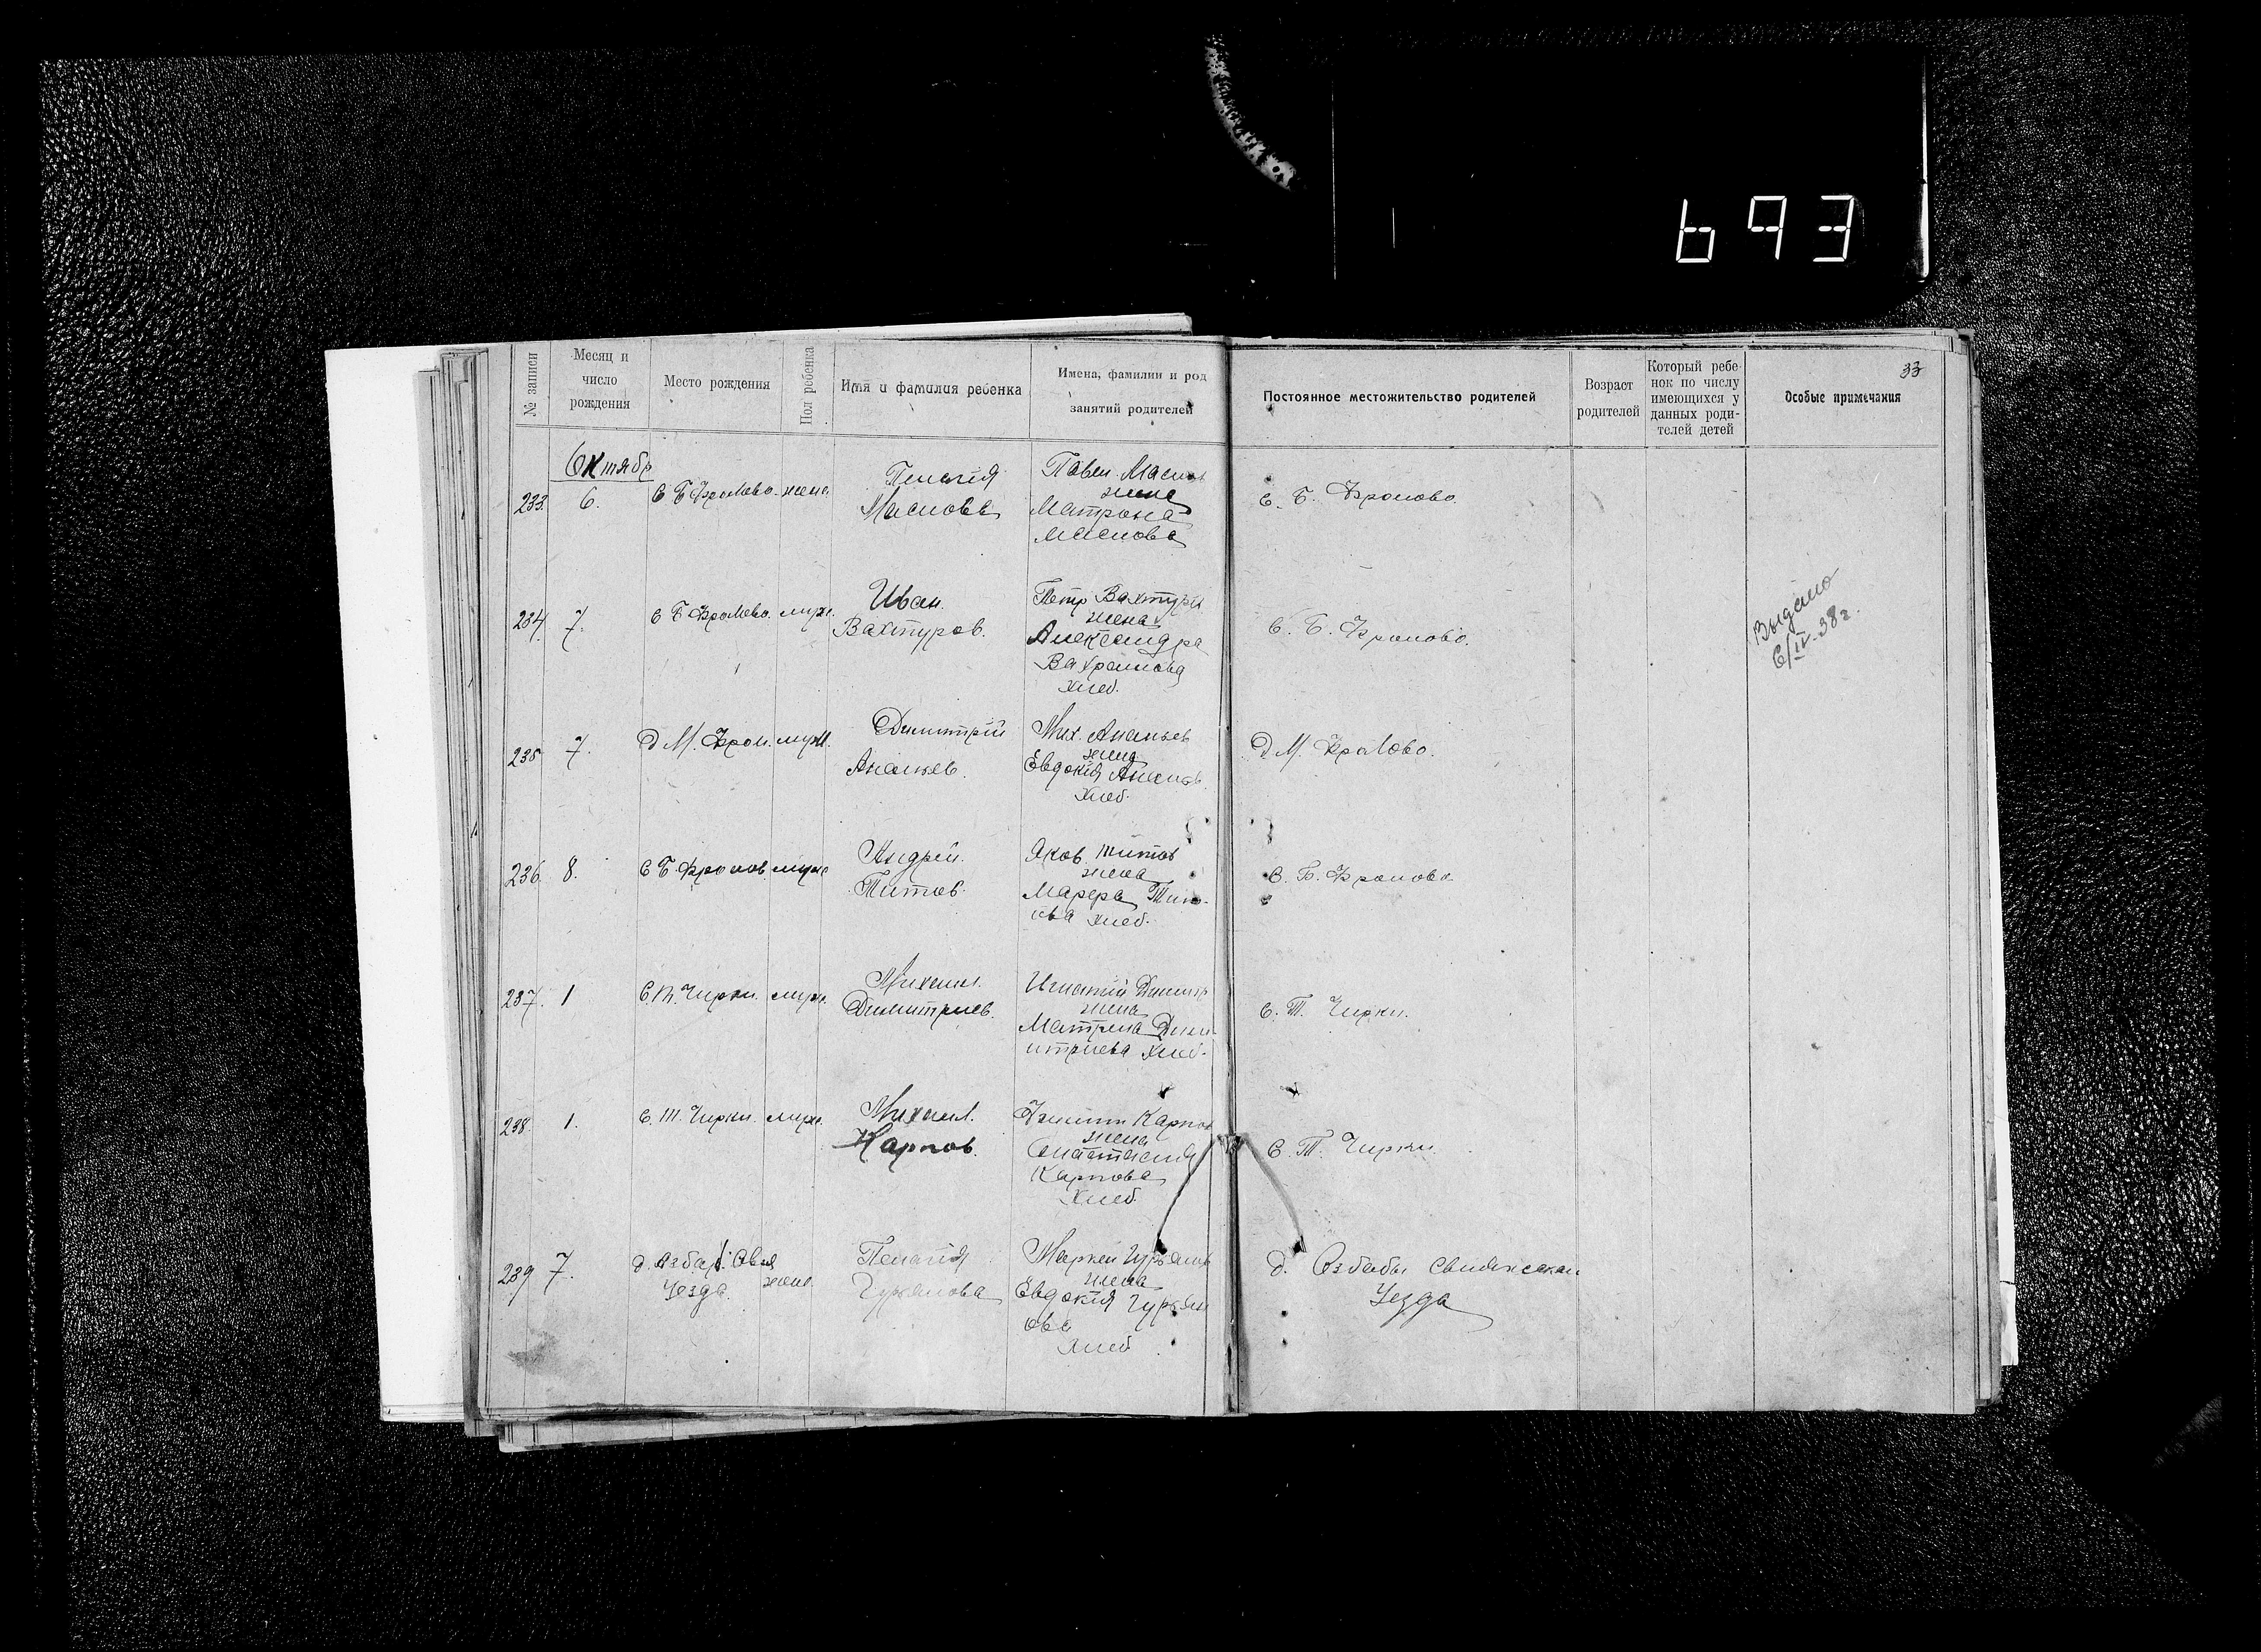 693
33
№ записи
Месяц и
число
рождения
Место рождения
Пол ребенка
Имя и фамилия ребенка
Имена, фамилии и род
занятий родителей
Постоянное местожительство родителей
Возраст
родителей
Который ребе-
нок по числу
имеющихся у
данных роди-
телей детей
Особые примечания
Октябр
233. 6. С Б Фролово. жена
Пелагія
Маслова
Павел Маслов
жена
Матрона
Маслова
С. Б. Фролово.
234. 7. С Б Фролово. муж.
Иван.
Вахтуров.
Петр Вахтуров
жена
Александра
хлеб.
С. Б. Фролово.
Выдано
6/IV-38 г.
235 7. д М. Фрол. муж.
Димитрій
Ананьев.
Мих. Ананьев
жена
Евдокія Ананьев.
Хлеб.
д М. Фролово.
236. 8. С Б. Фролов муж
Андрей.
Титов.
Яков Титов
жена
Марфа Тит-
ова хлеб.
С. Б. Фролово
237. 1 С. Т. Чирки. муж.
Михаил.
Димитриев.
Игнатий Димитр
жена
Матрена Дим-
итриева Хлеб.
С. Т. Чирки.
238. 1. С. Т. Чирки. муж.
Михаил.
Карпов.
Филипп Карпов
жена
Анастасия
Карпова
Хлеб.
С. Т. Чирки.
239 7. д. Азбаб. Свия
Уезда. жен.
Пелагія
Гурьянова
Маркел Гурьянов
жена
Евдокія Гурьян
ова
Хлеб
д. Азбабы Свияжскаго
Уезда